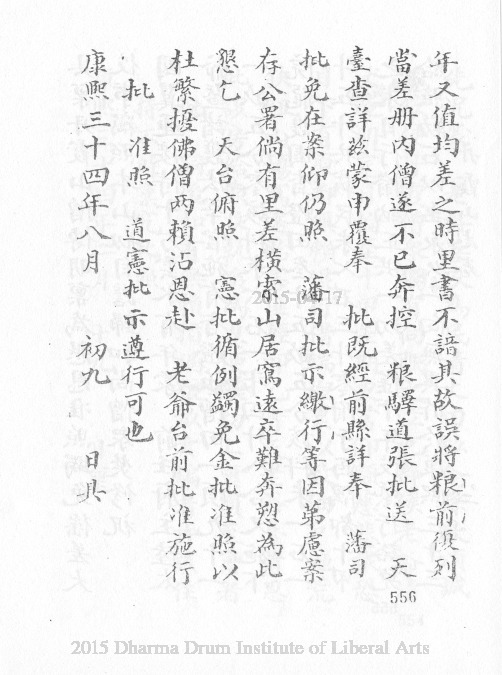 年又值均差之時里書不諳其故誤將粮前復列
當差册内僧遂不已奔控　粮驛道張批送　天
臺查詳玆蒙申覆奉　批既經前縣詳奉　藩司
批免在案仰仍照　藩司批示繳行等因第慮案
存公署倘有里差橫索山居窵遠卒難奔愬為此
懇乞　天台俯照　憲批循例蠲免金批准照以
杜繁擾佛僧两賴沾恩赴　老爺台前批准施行
批　准照　道憲批示遵行可也
康熙三十四年八月　初九　日具
556
2015-04-17
2015 Dharma Drum Institute of Liberal Arts